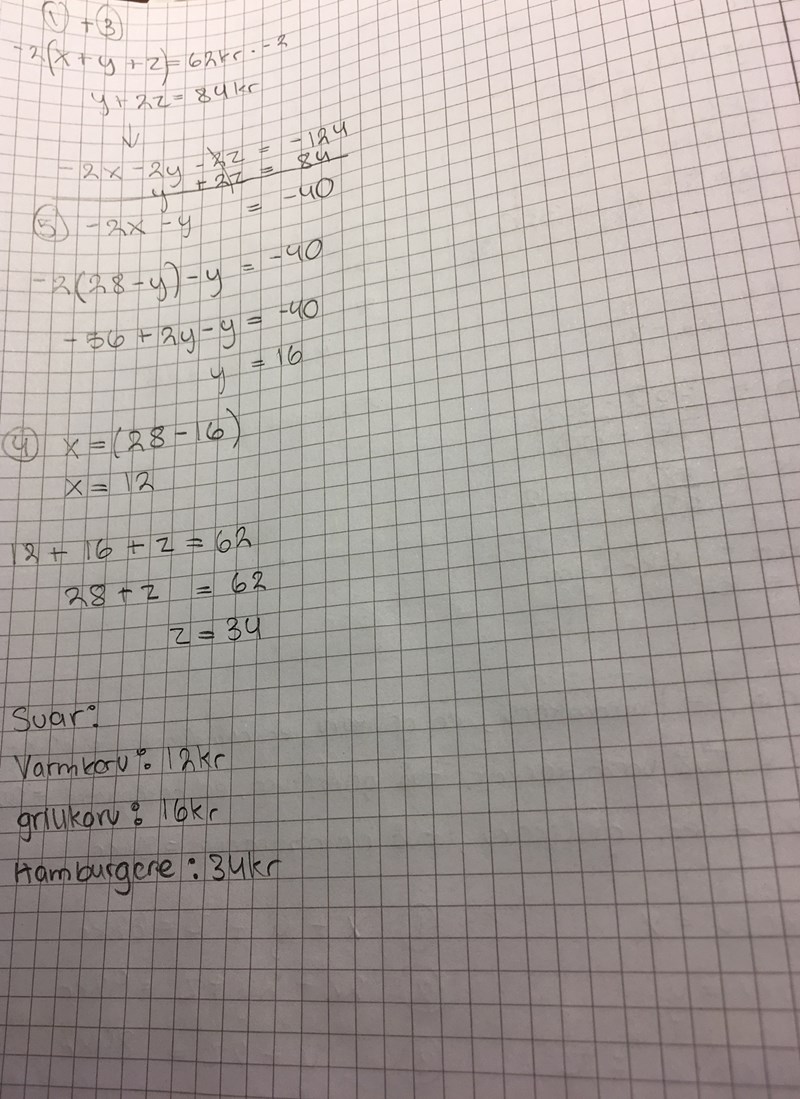 ① + ③
-2(x + y + z) = 62kr · -2
y + 2z = 84kr
↓
-2x - 2y - 2z = -124
y + 2z = 84
⑤ -2x - y = -40
-2(28 - y) - y = -40
-56 + 2y - y = -40
y = 16
④ x = (28 - 16)
x = 12
12 + 16 + z = 62
28 + z = 62
z = 34
Svar:
Varmkorv: 12kr
grillkorv: 16kr
Hamburgere: 34kr